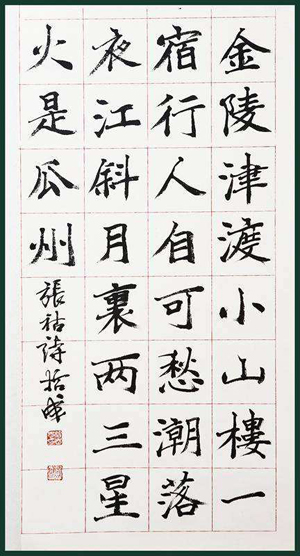 金陵津渡小山樓一
宿行人自可愁潮落
夜江斜月裏两三星
火是瓜州
張祜詩哲成